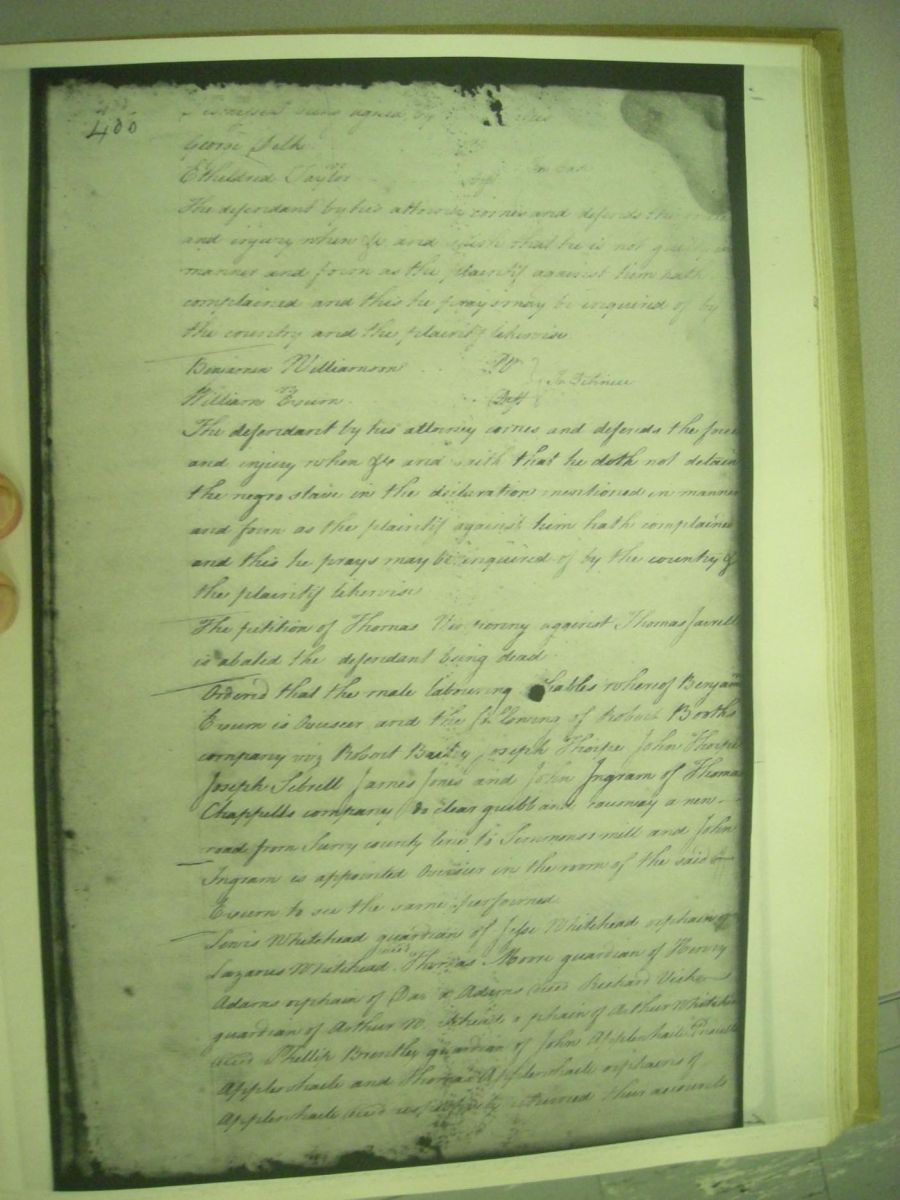 400
agreed by
George Delk
Etheldred Taylor Deft In Case
The defendant by his attorney comes and defends the
and injury when &c and saith that he is not guilty in
manner and form as the plaintif against him hath
complained and this he prays may be inquired of by
the country and the plaintif likewise
Benjamin Williamson Plt
William Exum Deft In Detinue
The defendant by his attorney comes and defends the force
and injury when &c and saith that he doth not detain
the negro slave in the declaration mentioned in manner
and form as the plaintif against him hath complained
and this he prays may be inquired of by the country &
the plaintif likewise
The petition of Thomas against Thomas Jarrell
is abated the defendant being dead
Ordered that the male labouring tithables whereof Benjamin
Exum is Overseer and the following of Robert Booths
company viz Robert Bailey Joseph Thorpe John Thorpe
Joseph Sebrell James Jones and John Ingram of Thomas
Chappells company do clear grubb and causway a new
road from Surry county line to Simmons's mill and John
Ingram is appointed Overseer in the room of the said
Exum to see the same performed
Lewis Whitehead guardian of Jesse Whitehead orphan of
Lazarus Whitehead decd Thomas Moore guardian of Henry
Adams orphain of Adams decd Richard Vick
guardian of Arthur Whitehead orphain of Arthur Whitehead
decd Phillip Brantley guardian of John Applewhaite Priscilla
Applewhaite and Thomas Applewhaite orphains of
Applewhaite decd respectively returned their accounts